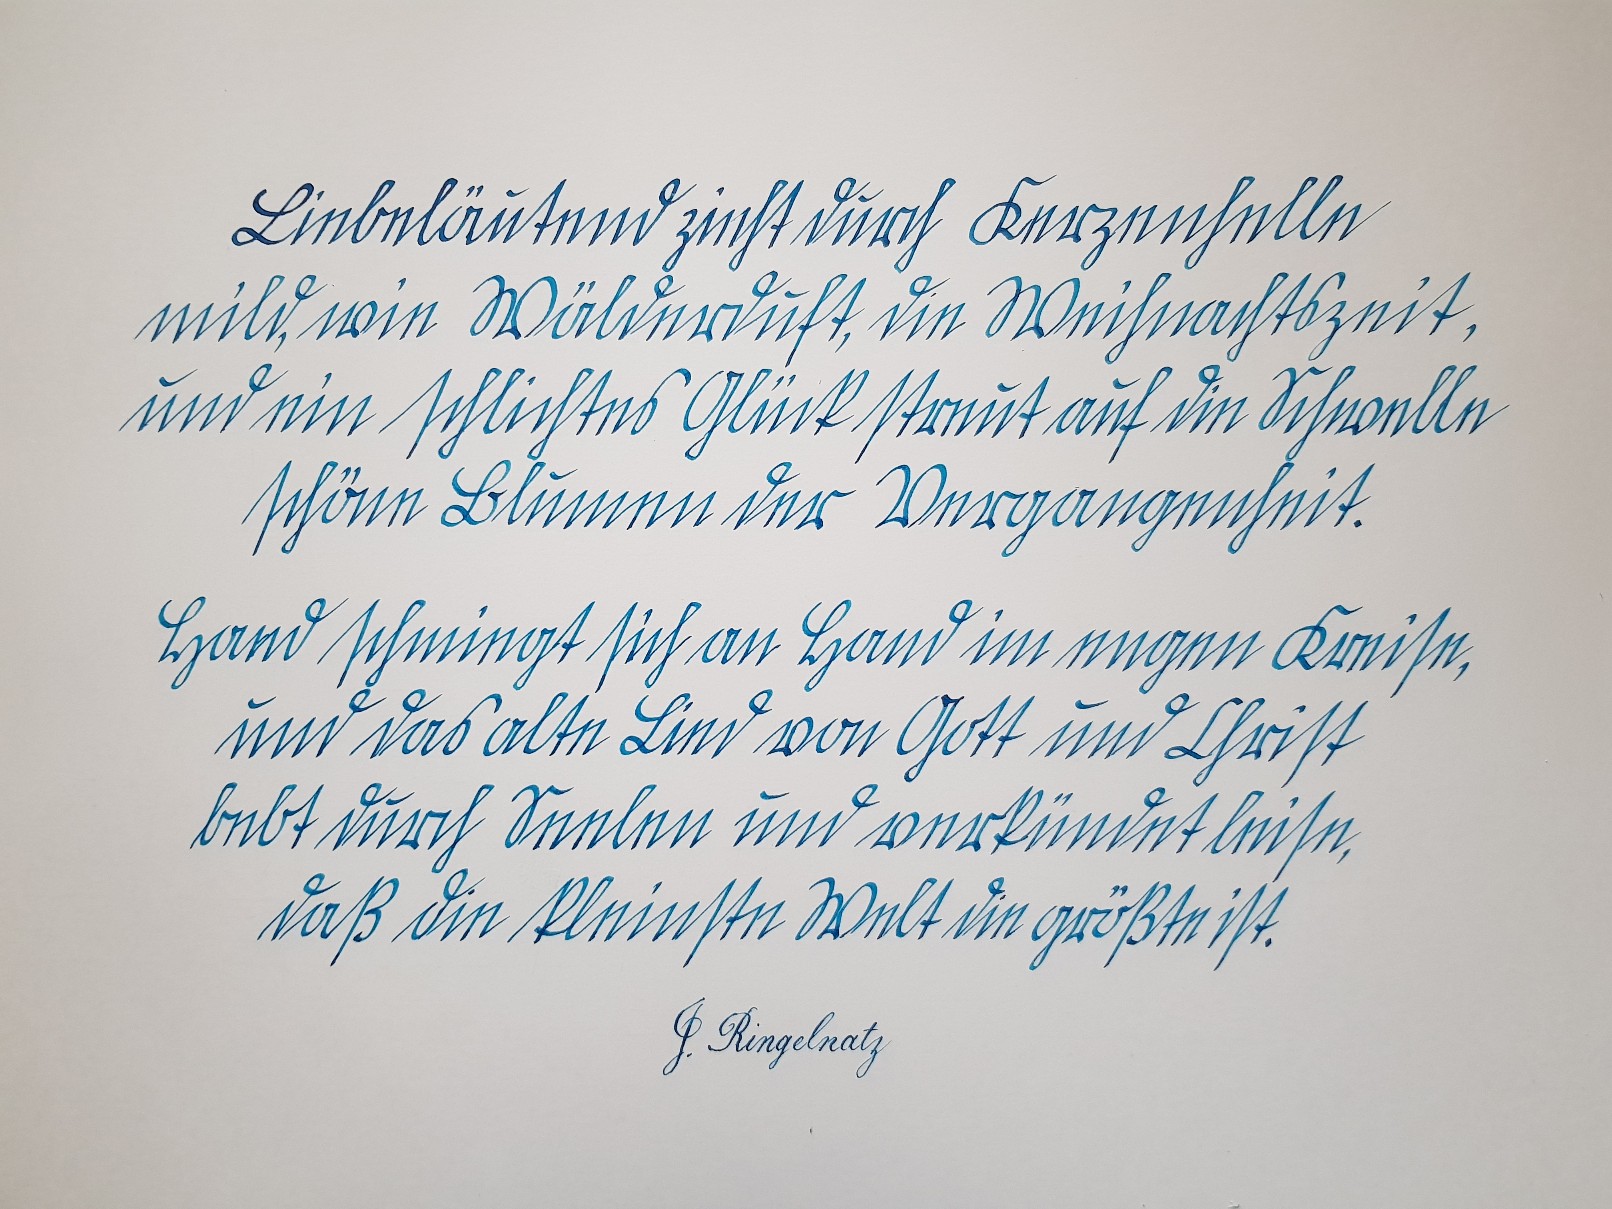 Liebeläutend zieht durch Kerzenhelle
mild, wie Wälderduft, die Weihnachtszeit,
und ein schlichtes Glück streut auf die Schwelle
schöne Blumen der Vergangenheit.
Hand schmiegt sich an Hand im engen Kreise,
und das alte Lied von Gott und Christ
bebt durch Seelen und verkündet leise,
daß die kleinste Welt die größte ist.
J. Ringelnatz